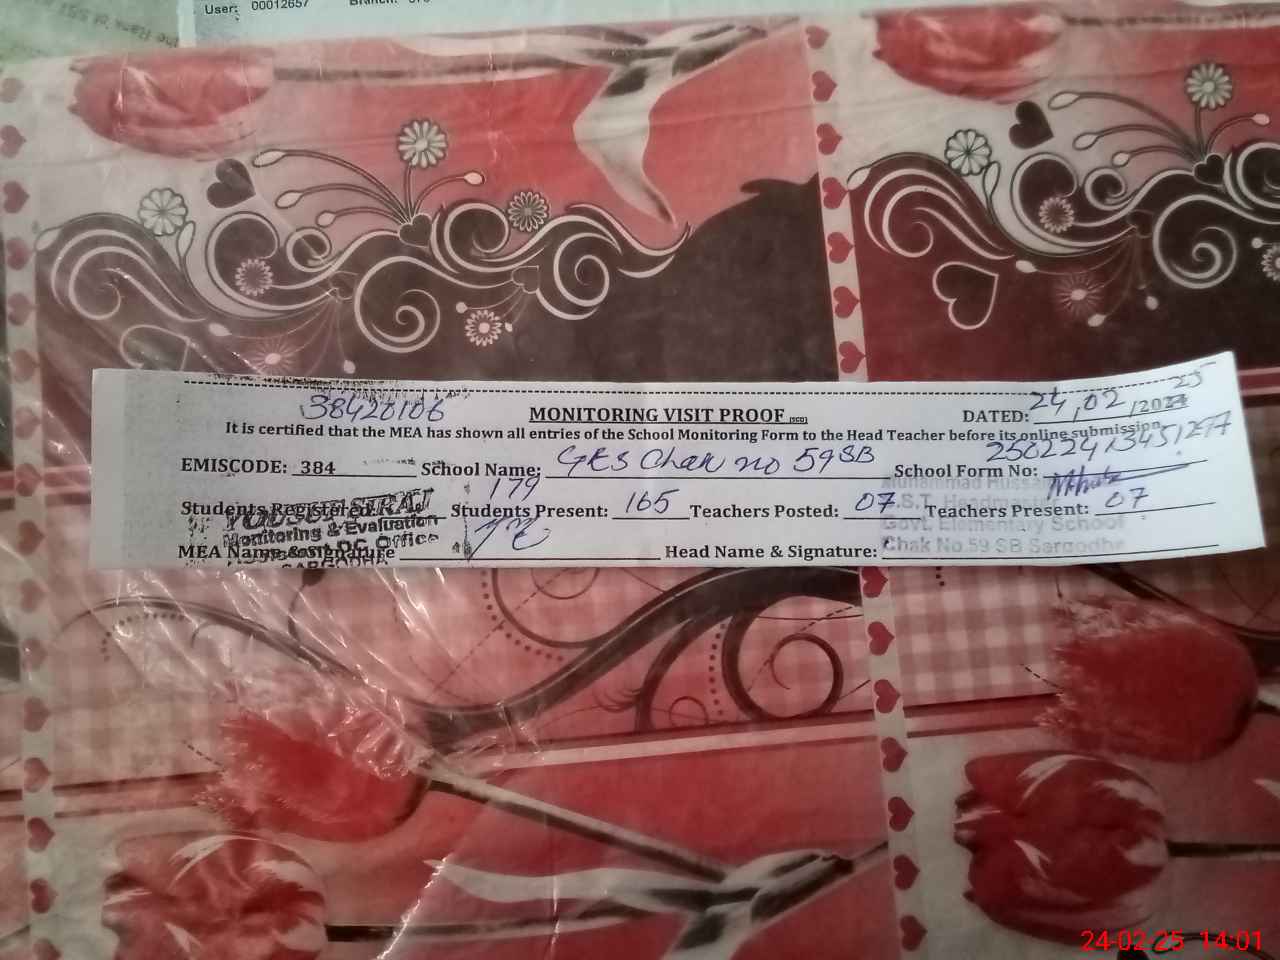 User: 00012657
38420106
MONITORING VISIT PROOF (SCO) DATED: 24,02/2025
It is certified that the MEA has shown all entries of the School Monitoring Form to the Head Teacher before its online submission
EMISCODE: 384 School Name: GES Chak no 59 SB School Form No:
Students Registered: 179 Students Present: 165 Teachers Posted: 07 Teachers Present: 07
MEA Name & Signature Head Name & Signature:
Monitoring & Evaluation
DC Office
SARGODHA
Muhammad Hussain
S.S.T. Headmaster
Govt. Elementary School
Chak No.59 SB Sargodha
24-02-25 14:01